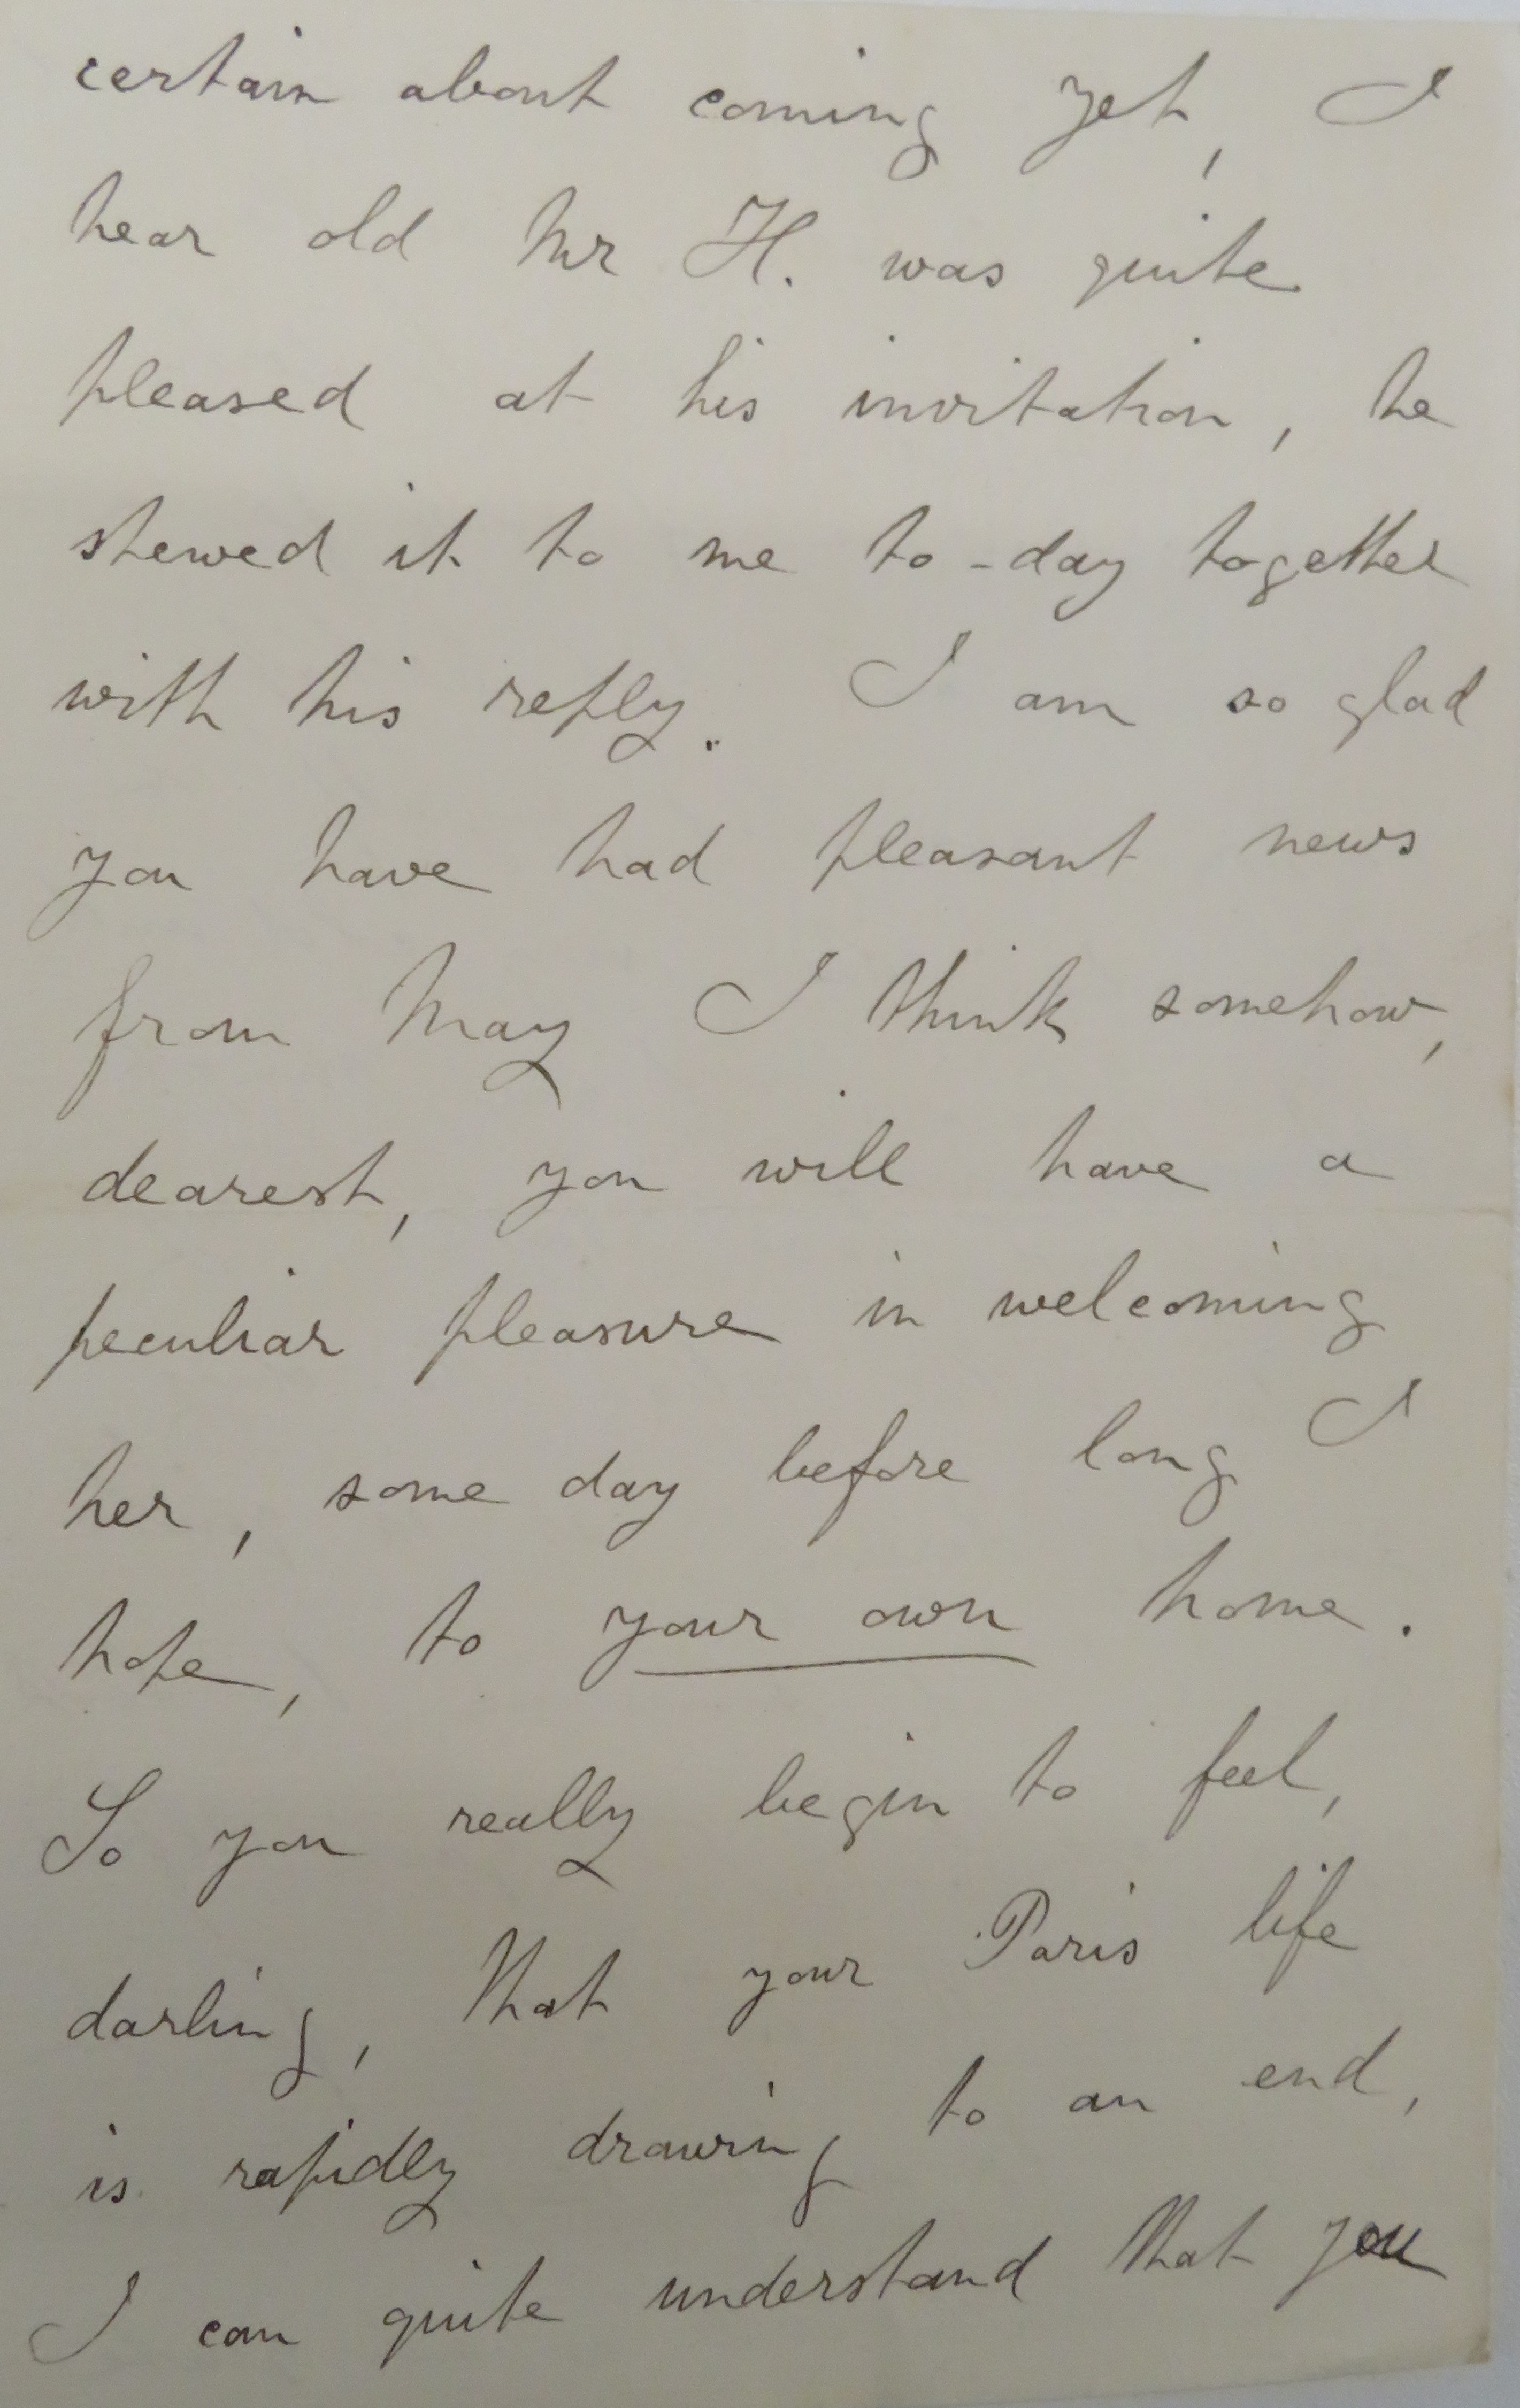 certain about coming yet, I
hear old Mr H. was quite
pleased at his invitation, he
shewed it to me to-day together
with his reply. I am so glad
you have had pleasant news
from May I think somehow,
dearest, you will have a
peculiar pleasure in welcoming
her, some day before long I
hope, to your own home.
So you really begin to feel,
darling, that your Paris life
is rapidly drawing to an end,
I can quite understand that you